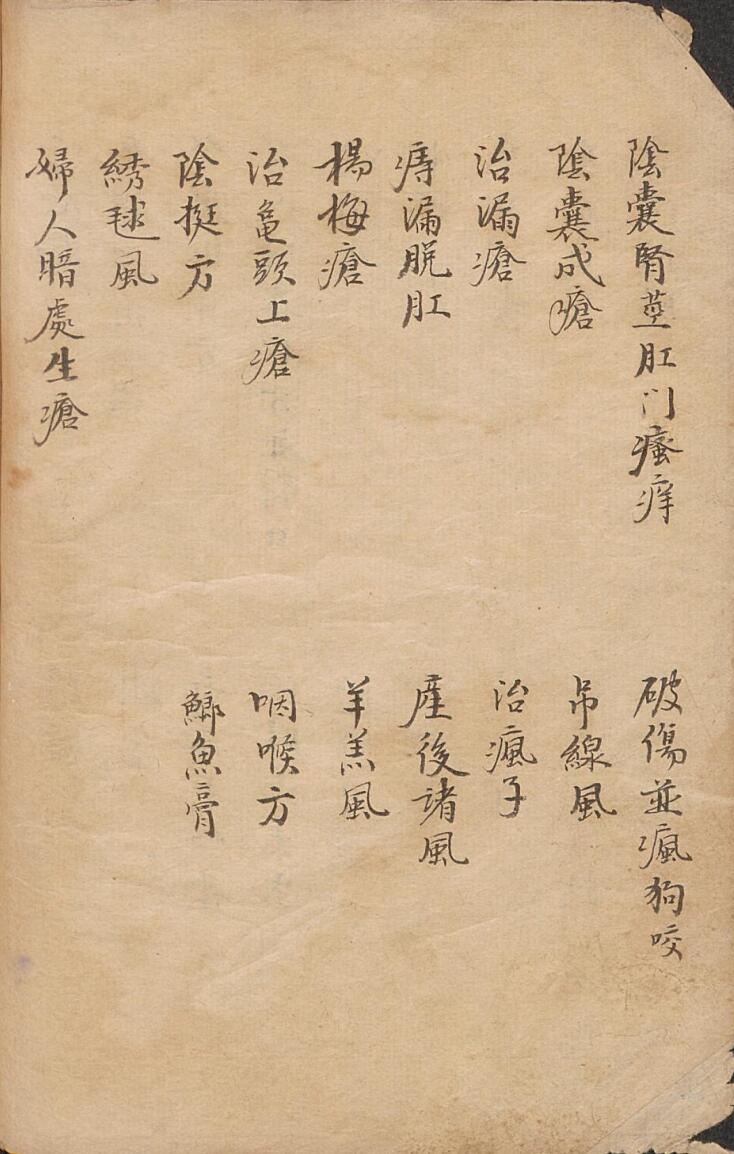 陰囊腎莖肛门瘙痒
陰囊成瘡
治漏瘡
痔漏脱肛
楊梅瘡
治龟頭上瘡
陰挺方
綉毬風
婦人暗處生瘡
破傷並瘋狗咬
吊線風
治瘋子
産後諸風
羊羔風
咽喉方
鰤魚膏